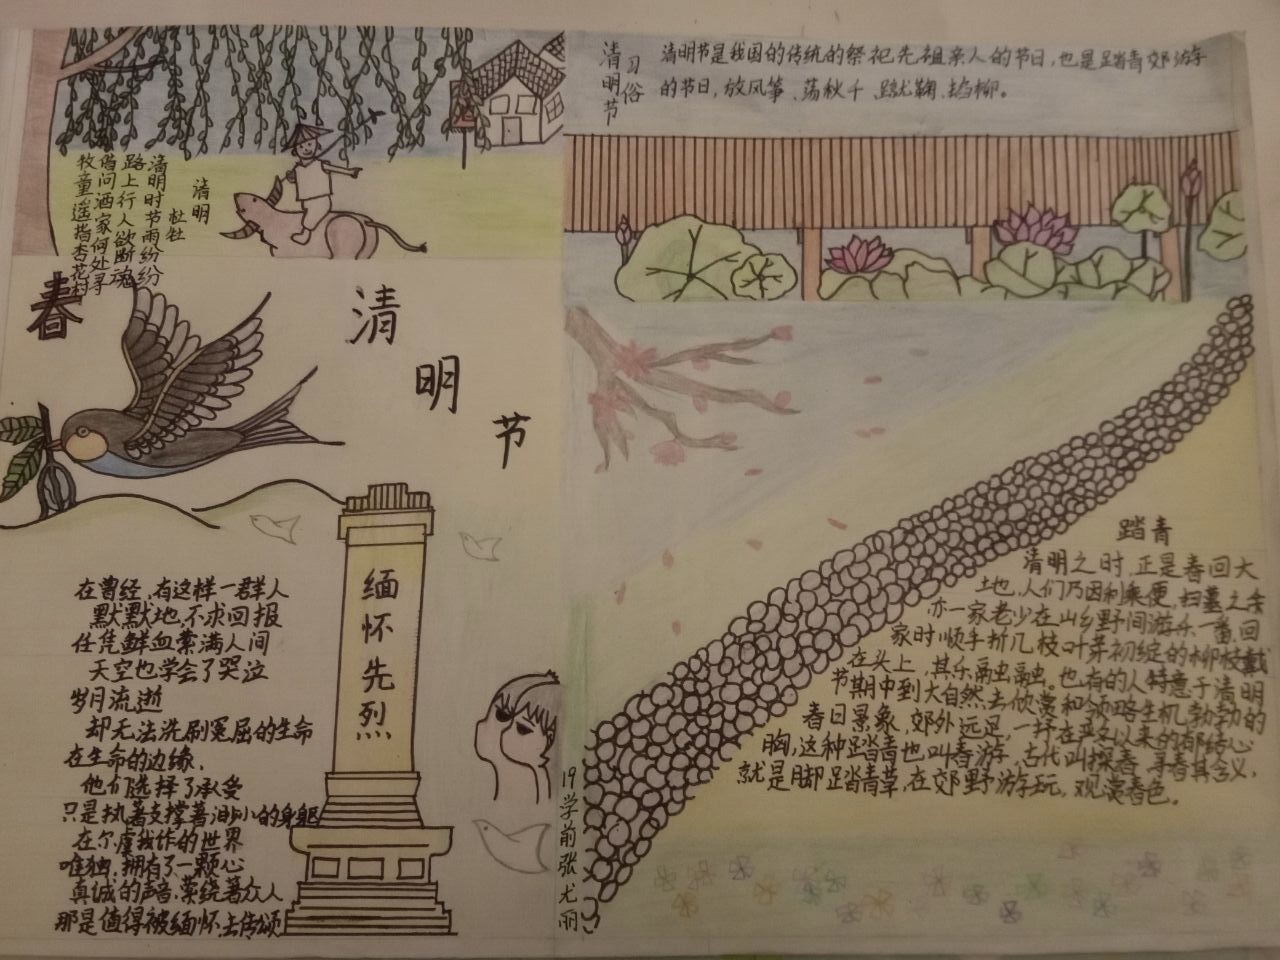 清明
杜牡
清明时节雨纷纷
路上行人欲断魂
借问酒家何处寻
牧童遥指杏花村
春
清明节
缅怀先烈
在曾经,有这样一群人
默默地,不求回报
任凭鲜血萦满人间
天空也学会了哭泣
岁月流逝
却无法洗刷冤屈的生命
在生命的边缘,
他们选择了承受
只是执著支撑著渺小的身躯
在尔虞我诈的世界
唯独,拥有了一颗心
真诚的声音,萦绕著众人
那是值得被缅怀,去传颂
19学前张尤丽
清明节
习俗
清明节是我国的传统的祭祀先祖亲人的节日,也是踏青郊游
的节日,放风筝、荡秋千、蹴鞠、插柳。
踏青
清明之时,正是春回大
地,人们乃因利乘便,扫墓之余
亦一家老少在山乡野间游乐一番,回
家时顺手折几枝叶芽初绽的柳枝戴
在头上,其乐融融。也有的人特意于清明
节期中到大自然去欣赏和领略生机勃勃的
春日景象,郊外远足,一抒在严冬以来的郁结心
胸,这种踏青也叫春游,古代叫探春、寻春其含义,
就是脚踏青草,在郊野游玩,观赏春色。